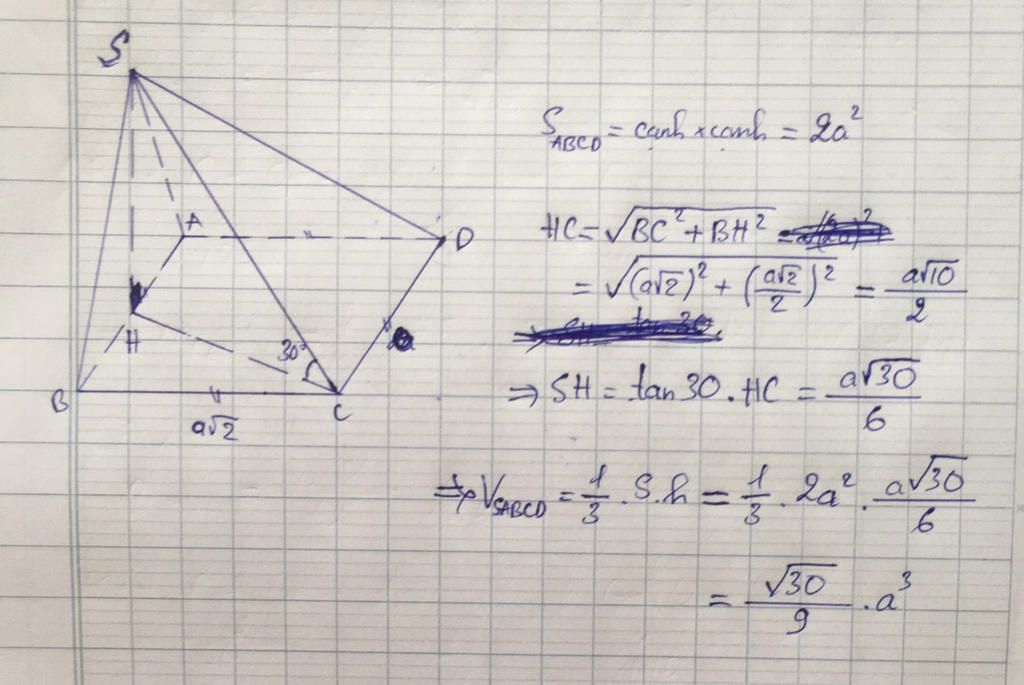 S
A
D
H
30°
B
C
a√2
S_ABCD = cạnh × cạnh = 2a²
HC = √(BC² + BH²)
= √((a√2)² + (a√2/2)²) = a√10/2
⇒ SH = tan 30 . HC = a√30/6
⇒ V_SABCD = 1/3 . S . h = 1/3 . 2a² . a√30/6
= √30/9 . a³